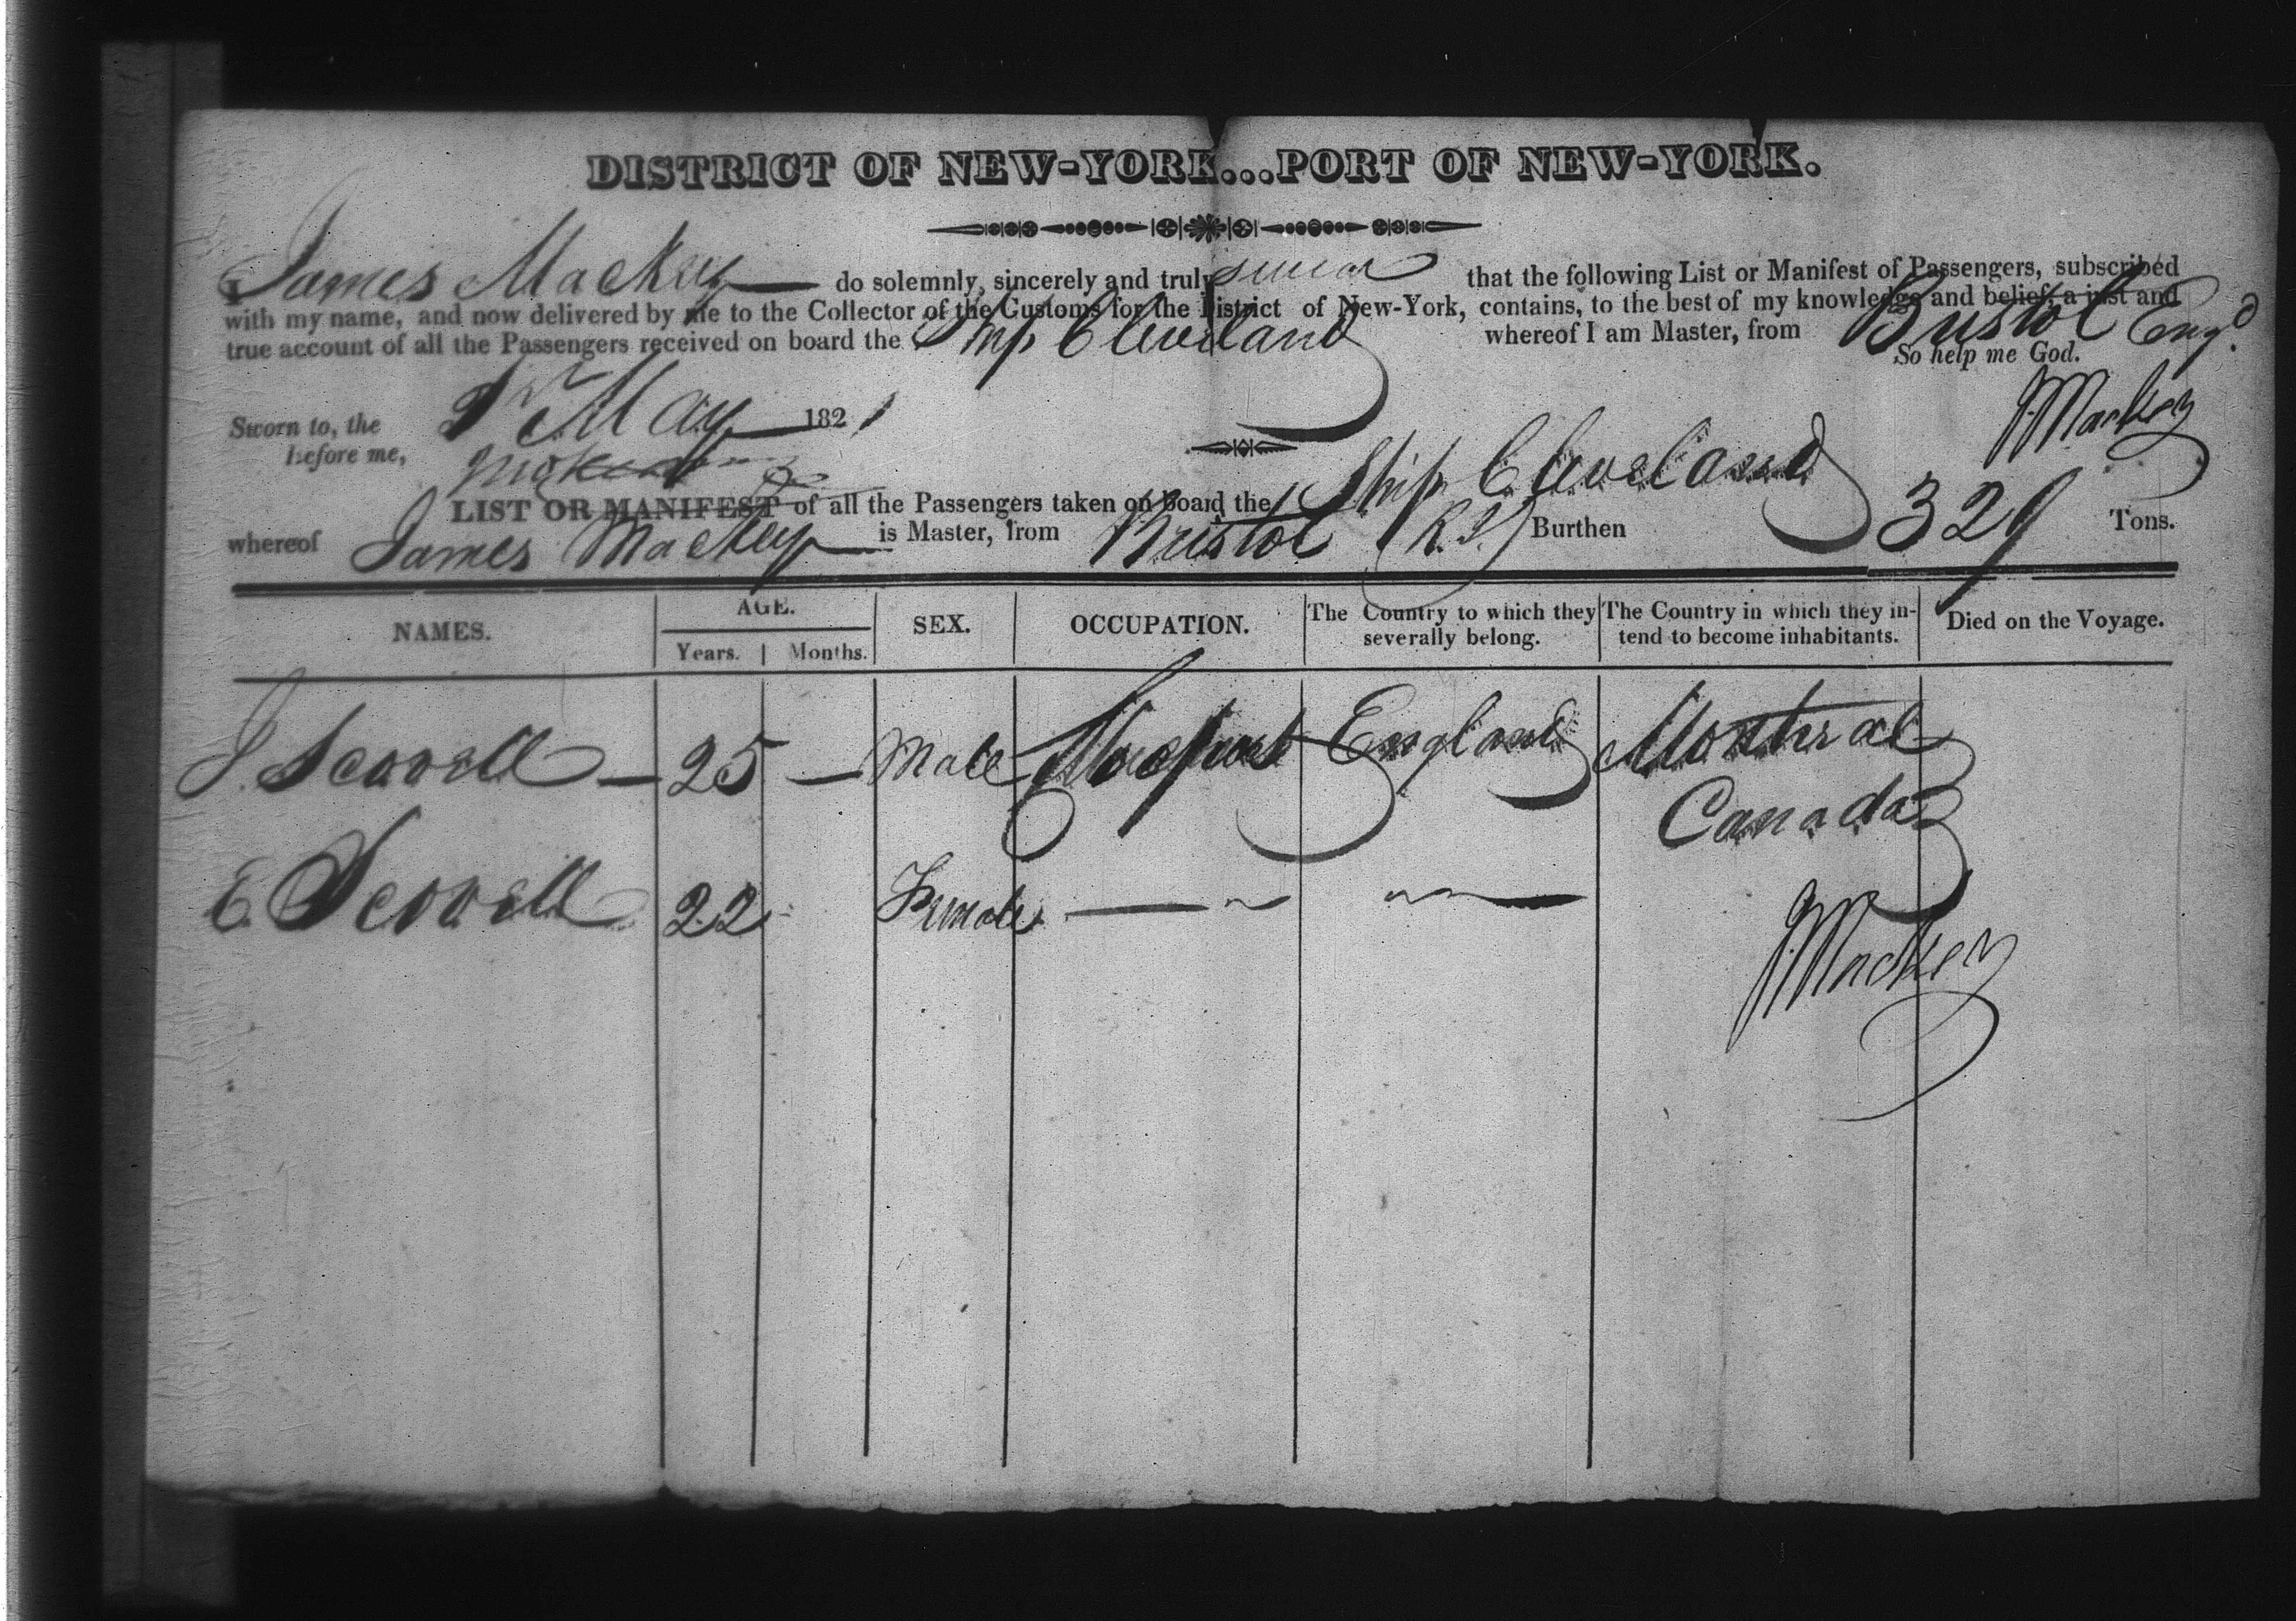 DISTRICT OF NEW-YORK...PORT OF NEW-YORK.
I James Mackey do solemnly, sincerely and truly swear that the following List or Manifest of Passengers, subscribed
with my name, and now delivered by me to the Collector of the Customs for the District of New-York, contains, to the best of my knowledge and belief, a just and
true account of all the Passengers received on board the Ship Cleveland whereof I am Master, from Bristol Engd
So help me God.
Sworn to, the 1st May 1821
before me,
J. Mackey
LIST OR MANIFEST of all the Passengers taken on board the Ship Cleveland
whereof James Mackey is Master, from Bristol (R.I.) Burthen 329 Tons.
NAMES. AGE. SEX. OCCUPATION. The Country to which they severally belong. The Country in which they intend to become inhabitants. Died on the Voyage.
Years. Months.
J. Scovell 25 Male England Montreal
Canada
E. Scovell 22 Female
J. Mackey